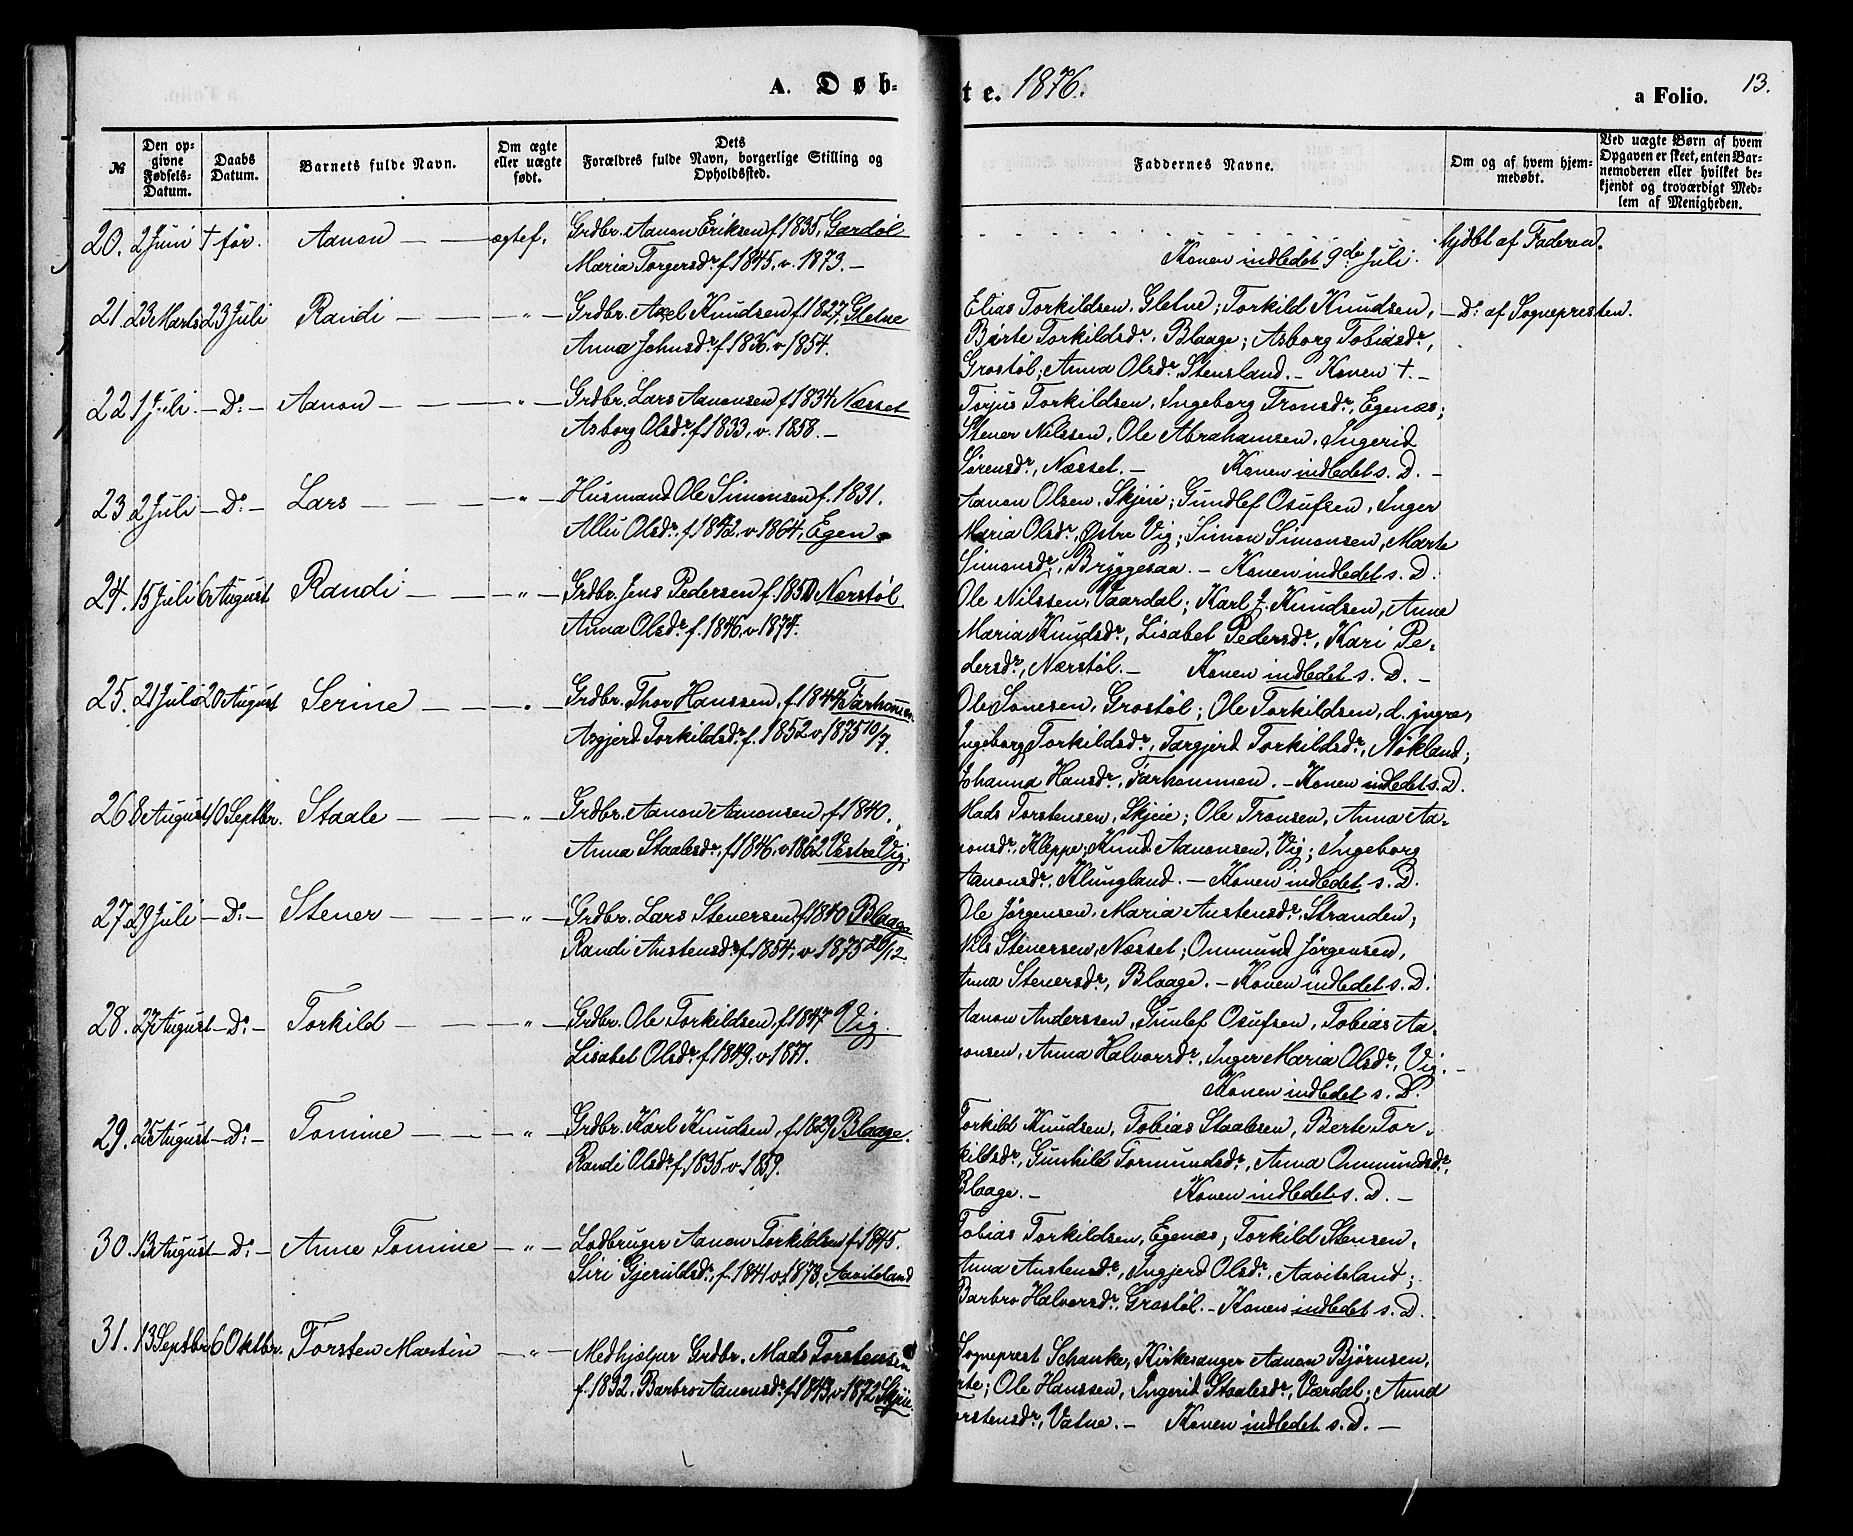 A. Døb-
te. 1876.
a Folio. 13.
№
Den op-
givne
Fødsels-
Datum.
Daabs
Datum.
Barnets fulde Navn.
Om ægte
eller uægte
født.
Dets
Forældres fulde Navn, borgerlige Stilling og
Opholdssted.
Faddernes Navne.
Om og af hvem hjem-
medøbt.
Ved uægte Børn af hvem
Opgaven er skeet, enten Bar-
nemoderen eller hvilket be-
kjendt og troværdigt Med-
lem af Menigheden.
20. 2 Juni † før. Aanon — — ægtef. Grdbr. Aanon Eriksen f 1835, Gardøl
Maria Torgersdr. f 1845, v. 1873. —
Konen indledet 9de Juli. hjdbt af Faderen.
21. 23 Marts 23 Juli Randi — — — „ — Grdbr. Axel Knudsen f 1827, Gletne
Anna Johnsdr. f 1836, v 1854.
Elias Torkildsen, Gletne; Torkild Knudsen, — Do. af Sognepresten.
Birte Torkildsdr, Blaage; Asborg Tobiasdr,
Grostøl; Anna Olsdr. Stensland. — Konen †. —
22 1 Juli — Do: — Aanon — — — „ — Grdbr. Lars Aanonsen f 1834 Næsset
Asborg Olsdr. f 1833, v. 1858. —
Torjus Torkildsen, Ingeborg Tronsdr, Egenæs;
Stener Nilssen, Ole Abrahamsen, Ingerid
Sørensdr, Næsset. — Konen indledet s. D. —
23 2 Juli — Do: — Lars — — — „ — Husmand Ole Simonsen f. 1831.
Allu Olsdr. f 1842, v 1864, Egen
Aanon Olsen, Skjeie; Gundlef Osufsen, Inger
Maria Olsdr, Østre Vig; Simon Simonsen, Marte
Simonsdr, Bryggesaa. — Konen indledet s. D.
24. 15 Juli 6 August Randi — — „ — Grdbr. Jens Pedersen f. 1850 Nærstøl
Anna Olsdr. f. 1846, v 1874.
Ole Nilssen, Vaardal; Karl J. Knudsen, Anne
Maria Knudsdr, Lisabet Pedersdr, Kari Pe-
dersdr, Nærstøl. — Konen indledet s. D. —
25. 21 Juli 20 August Serine — — „ — Grdbr. Thor Hanssen, f 1844 Farhommen
Asgjerd Torkildsdr. f. 1852 v 1875 10/7.
Ole Sonesen, Grostøl; Ole Torkildsen, d. yngre,
Ingeborg Torkildsdr, Targjerd Torkildsdr, Nökland;
Johanna Hansdr, Farhommen. — Konen indledet s. D.
26 8 August 10 Septbr. Staale — — „ — Grdbr. Aanon Aanonsen, f 1840.
Anna Staalesdr, f 1846, v 1862 Vestre Vig
Mads Torstensen, Skjeie; Ole Tronsen, Anna Aa-
nonsdr. Kleppe; Knud Aanonsen, Vig; Ingeborg
Aanonsdr. Klungland. — Konen indledet s. D.
27. 29 Juli — Do: — Stener — — „ — Grdbr. Lars Stenersen f 1840 Blaage
Randi Austensdr f 1854, v 1875 26/12.
Ole Jørgensen, Maria Austensdr, Stranden;
Nils Stenersen, Næsset; Ommund Jørgensen,
Anna Stenersdr, Blaage. — Konen indledet s. D.
28. 27 August — Do: — Torkild — — „ — Grdbr. Ole Torkildsen, f 1847 Vig.
Lisabet Olsdr. f 1849. v 1871.
Aanon Anderssen, Gunlef Osufsen, Tobias Aa-
nonsen, Anna Halvorsdr, Inger Maria Olsdr, Vig. —
Konen indledet s. D.
29. 25 August — Do: — Tomine — — „ — Grdbr. Karl Knudsen, f. 1829 Blaage.
Randi Olsdr f 1835, v. 1859.
Torkild Knudsen, Tobias Staalesen, Berte Tor-
kildsdr, Gunhild Tormundsdr, Anna Ommundsdr,
Blaage. — Konen indledet s. D. —
30. 13 August — Do: — Anne Tomine — „ — Lodbruger Aanon Torkildsen f 1845.
Siri Gjerulfsdr, f. 1841 v. 1873, Aavitsland
Tobias Torkildsen, Egenæs; Torkild Stensen,
Anna Austensdr, Ingjerd Olsdr, Aavitsland;
Barbro Halvorsdr, Grostøl. — Konen indledet s. D.
31. 13 Septbr 6 Oktbr. Torsten Martin — „ — Medhjælper Grdbr. Mads Torstensen
f. 1832. Barbro Aanonsdr. f 1843, v 1872 Skjeie.
Sogneprest Schanke, Kirkesanger Aanon Bjørnsen,
rte; Ole Hanssen, Ingerid Staalesdr, Værdal; Anna
orstensdr, Vatne. — Konen indledet s. D. —